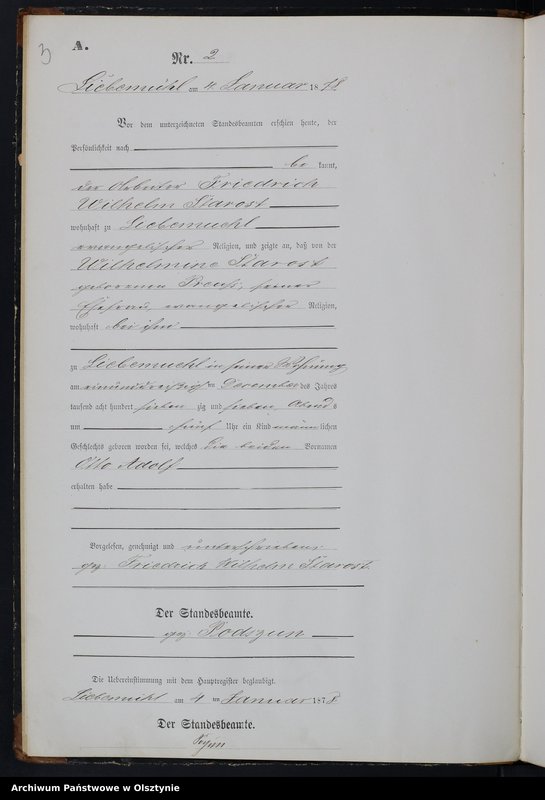 3
A.
Nr. 2
Liebemühl am 4 Januar 1878.
Vor dem unterzeichneten Standesbeamten erschien heute, der
Persönlichkeit nach
be kannt,
der Arbeiter Friedrich
Wilhelm Starost
wohnhaft zu Liebemuehl
evangelischer Religion, und zeigte an, daß von der
Wilhelmine Starost
geborenen Preuß, seiner
Ehefrau, evangelischer Religion,
wohnhaft bei ihm
zu Liebemuehl in seiner Wohnung
am einunddreißigsten December des Jahres
tausend acht hundert sieben zig und sieben, Abends
um fünf Uhr ein Kind männlichen
Geschlechts geboren worden sei, welches die beiden Vornamen
Otto Adolf
erhalten habe
Vorgelesen, genehmigt und unterschrieben:
gez: Friedrich Wilhelm Starost.
Der Standesbeamte.
gez: Podszun
Die Uebereinstimmung mit dem Hauptregister beglaubigt.
Liebemühl am 4 ten Januar 1878.
Der Standesbeamte.
Archiwum Państwowe w Olsztynie